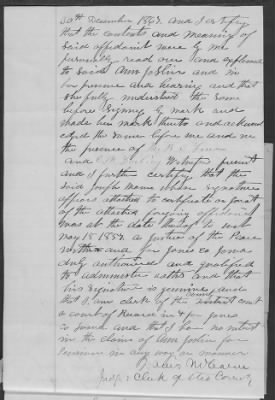 30th December 1857. And I certify
that the contents and meaning of
said affidavit were by me
personally read over and explained
to said Ann Joslin and in
her presence and hearing and that
she fully understood the same
before signing by mark and
made her mark thereto and acknowl
edged the same before me and in
the presence of
and witnesses present
and I further certify that the
said Joseph whose signature
appears attached to certificate or jurat
of the attached foregoing affidavit
was at the date thereof to wit
May 18 1857. a Justice of the Peace
within and for Jones Co Iowa
duly authorized and qualified
to administer oaths and that
his signature is genuine, and
that I am clerk of the District Court
a court of Record in & for Jones
Co Iowa and that I have no interest
in the claim of Ann Joslin for
Pension in any way or manner
Judge & Clerk of the County